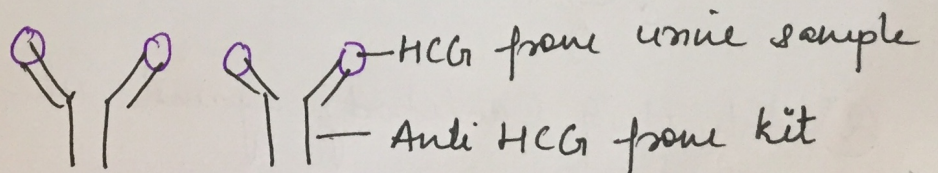 HCG from urine sample
Anti HCG from kit